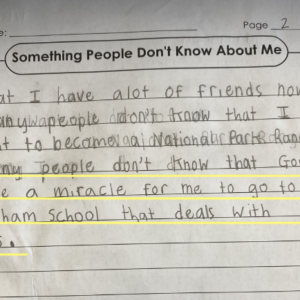 e: Page 2
Something People Don't Know About Me
at I have alot of friends now
people don't know that I
t to become National Park Rang
ny people don't know that Go
e a miracle for me to go to
ham school that deals with
s.